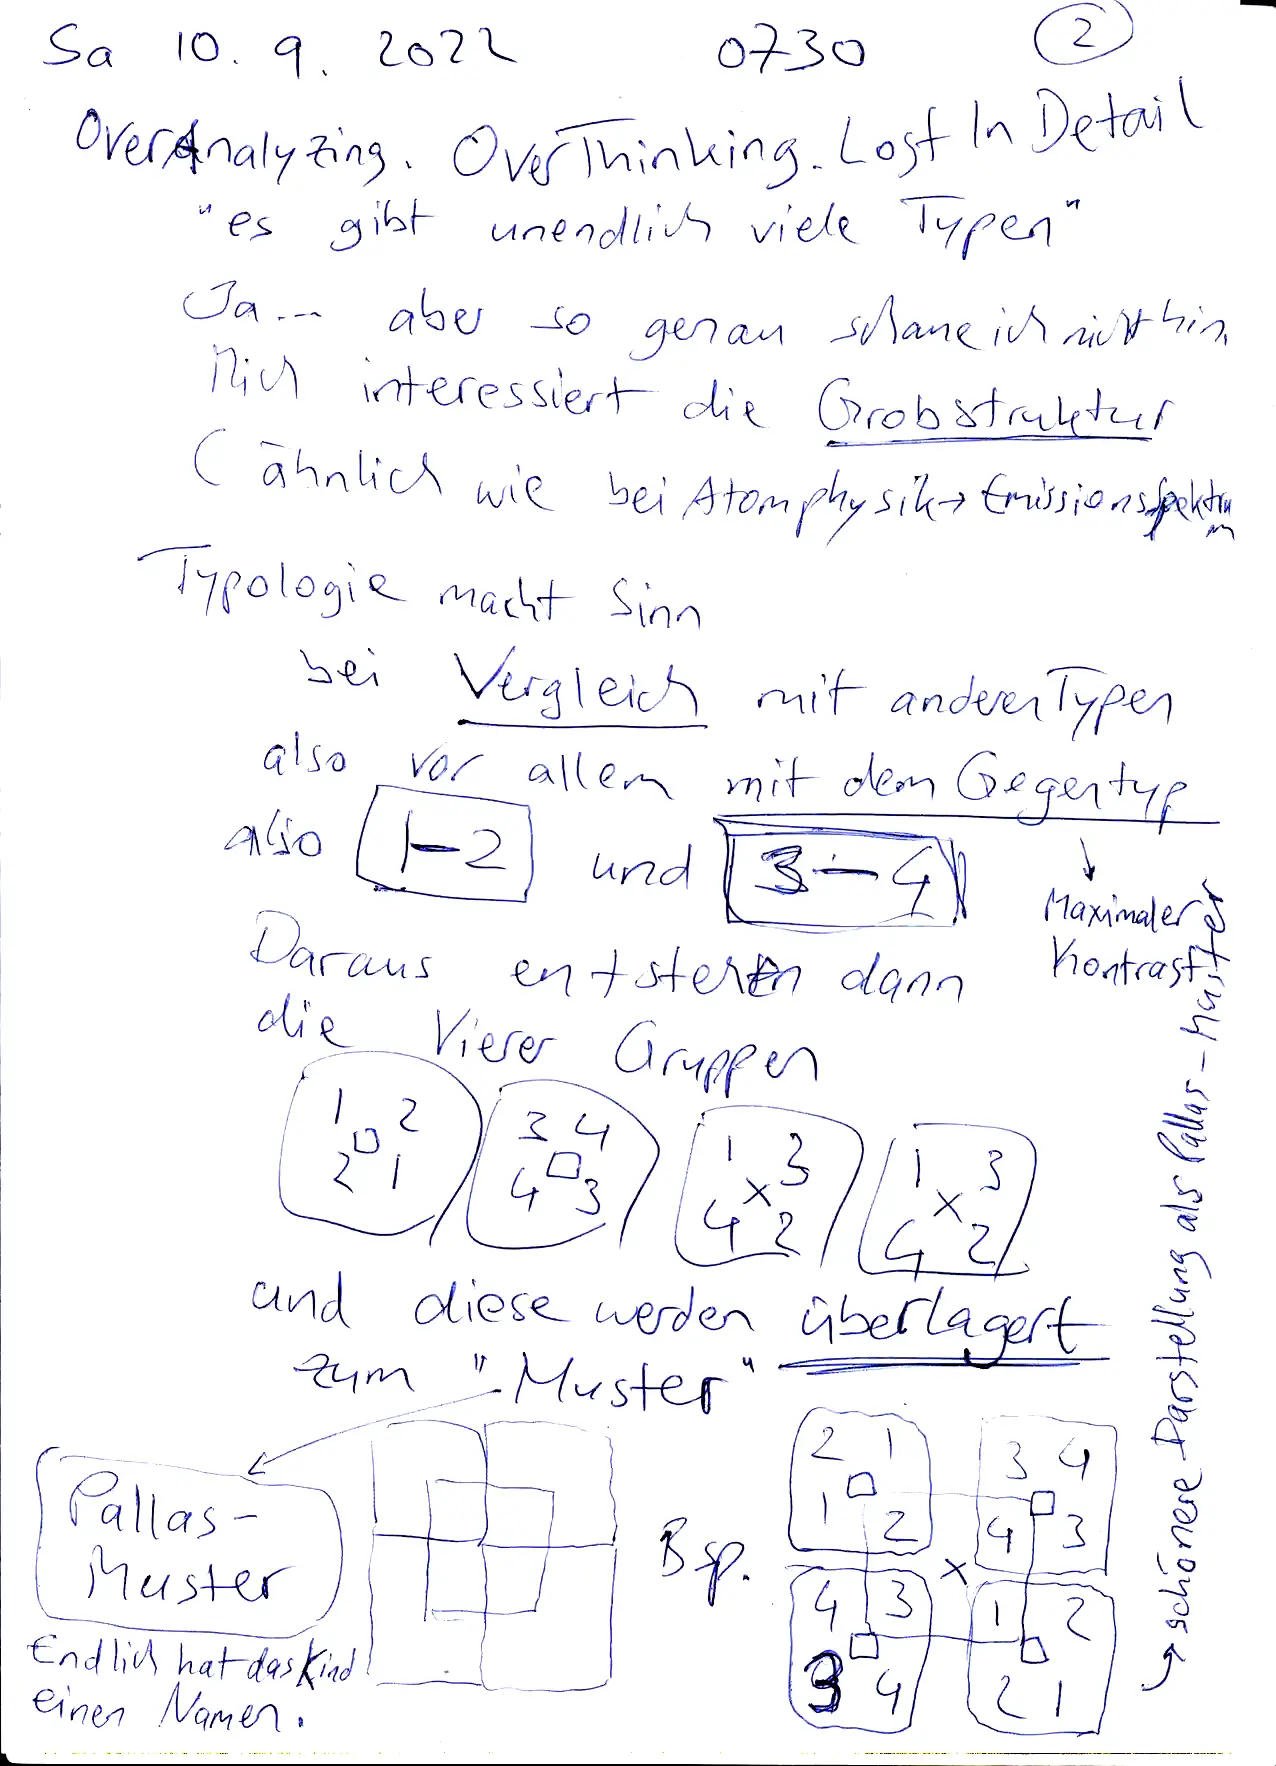 Sa 10. 9. 2022 0730 2
OverAnalyzing. OverThinking. Lost In Detail
"es gibt unendlich viele Typen"
Ja... aber so genau schaue ich nicht hin.
Mich interessiert die Grobstruktur
(ähnlich wie bei Atomphysik → Emissionsspektrum
Typologie macht Sinn
bei Vergleich mit anderen Typen
also vor allem mit dem Gegentyp
also 1–2 und 3–4
Maximaler
Kontrast
Daraus entstehen dann
die Vierer Gruppen
1 2 3 4 1 3 1 3
2 1 4 3 4 x 2 4 x 2
und diese werden überlagert
zum "Muster"
Pallas-
Muster
Endlich hat das Kind
einen Namen.
Bsp.
2 1 3 4
1 2 4 3
x
4 3 1 2
3 4 2 1
→ schönere Darstellung als Pallas-Muster